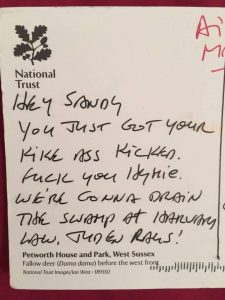 National
Trust
Ai
M
HEY SANDY
YOU JUST GOT YOUR
KIKE ASS KICKED.
FUCK YOU HYMIE.
WE'RE GONNA DRAIN
THE SWAMP AT HARVARD
LAW. JUDEN RAUS!
Petworth House and Park, West Sussex
Fallow deer (Dama dama) before the west front
National Trust Images/Ian West · 189350